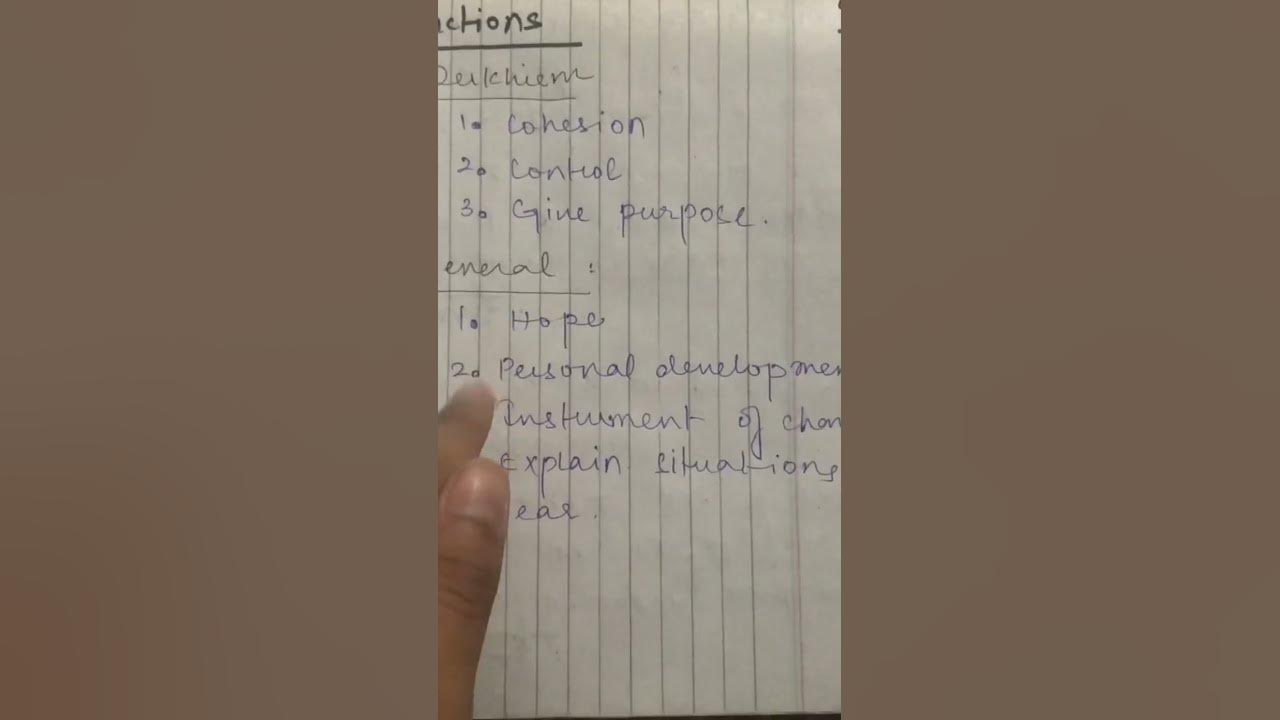 ctions
Durkhiem
1. Cohesion
2. Control
3. Give purpose.
eneral :
1. Hope
2. Personal developmen
Instrument of chan
Explain situations
ear.